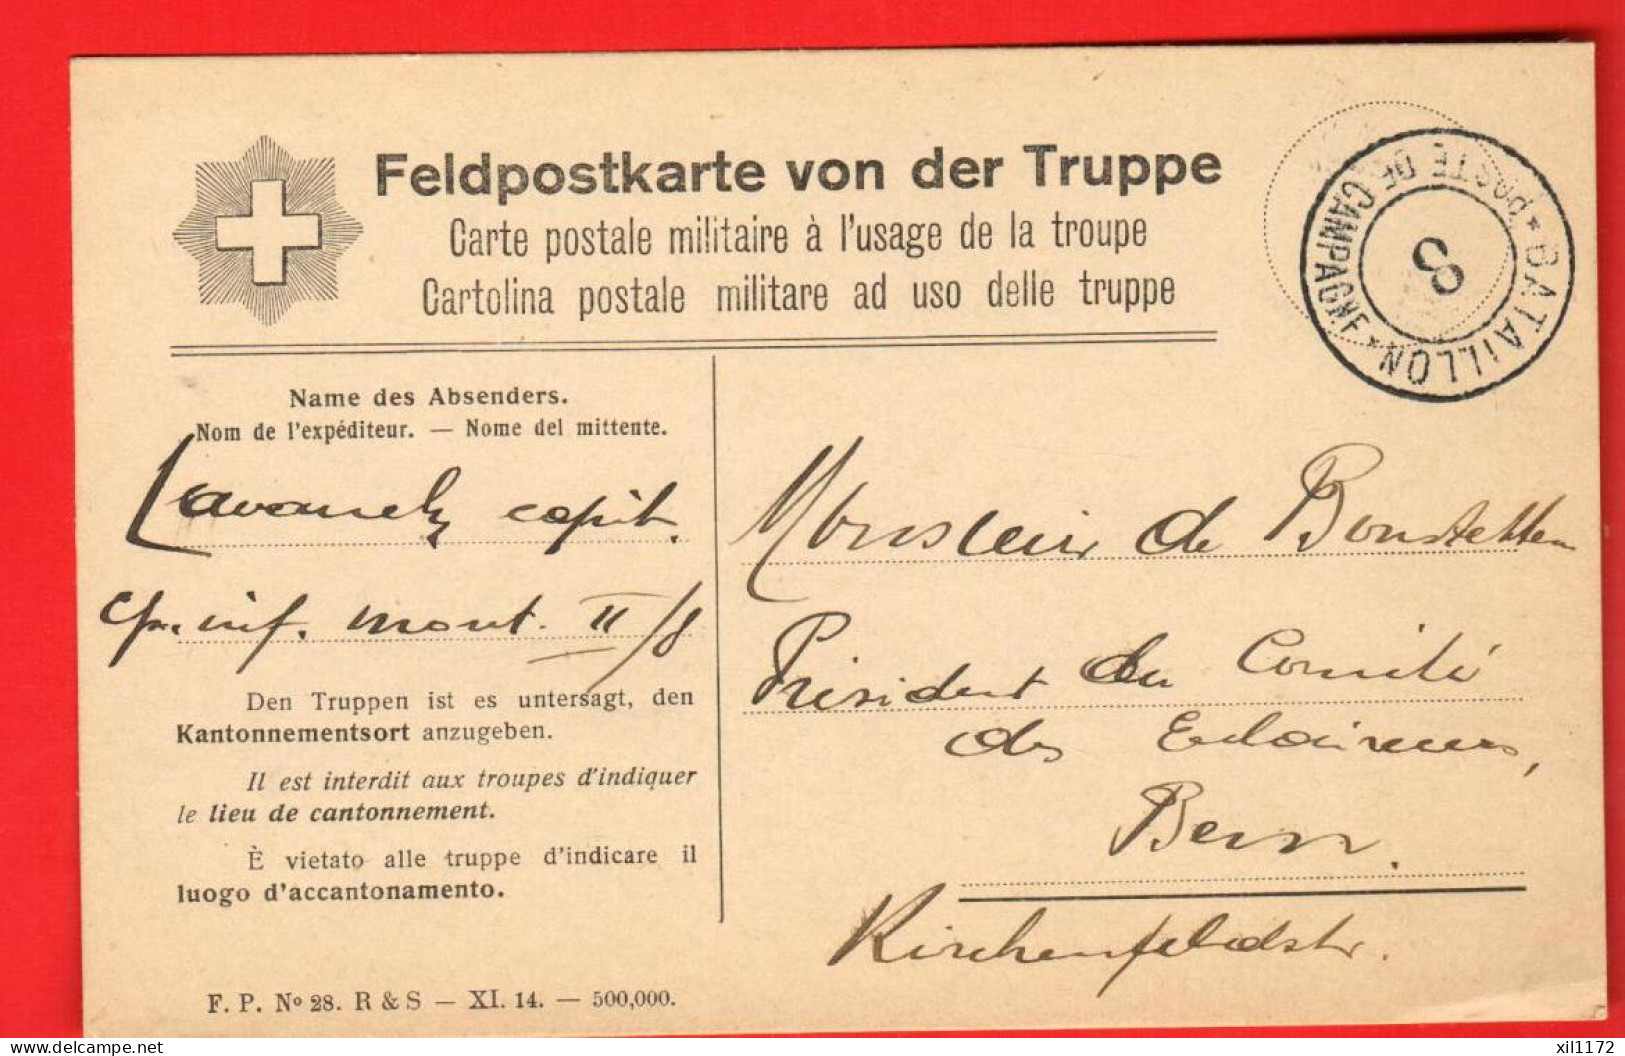 Feldpostkarte von der Truppe
Carte postale militaire à l'usage de la troupe
Cartolina postale militare ad uso delle truppe
* BATAILLON *
POSTE DE CAMPAGNE
8
Name des Absenders.
Nom de l'expéditeur. — Nome del mittente.
capit.
Cp. inf. mont. II/8
Den Truppen ist es untersagt, den
Kantonnementsort anzugeben.
Il est interdit aux troupes d'indiquer
le lieu de cantonnement.
È vietato alle truppe d'indicare il
luogo d'accantonamento.
F. P. Nº 28. R & S — XI. 14. — 500,000.
Monsieur de Bonstetten
Président du Comité
des Eclaireurs,
Bern.
Kirchenfeldstr.
delcampe.net
xil1172